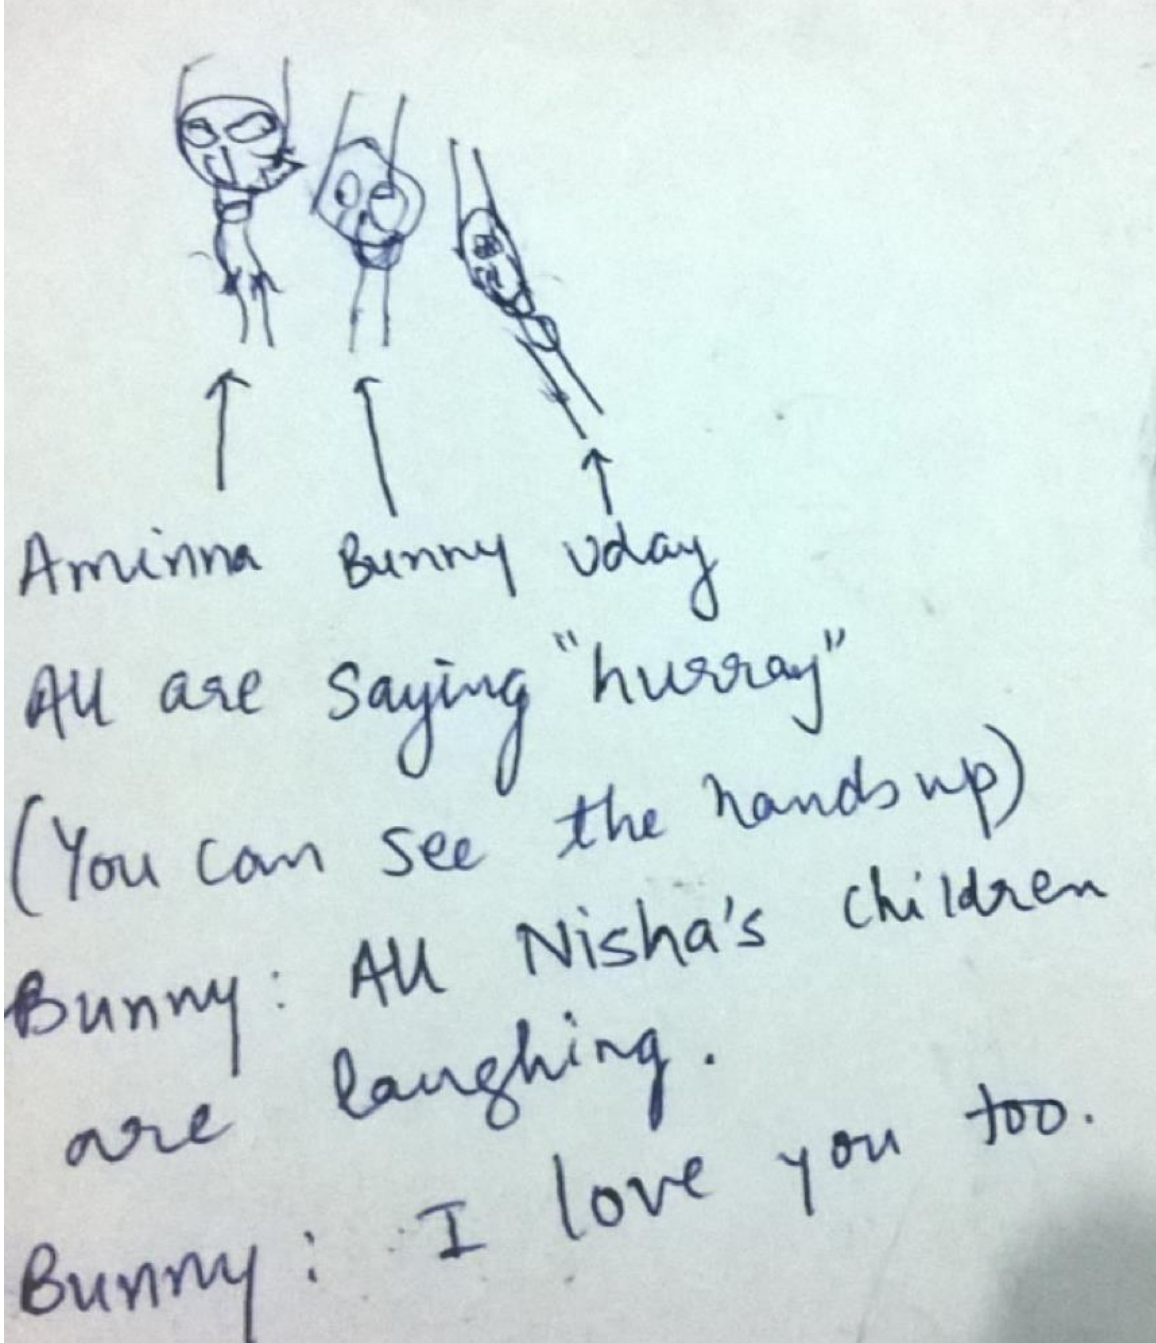 Aminna Bunny Uday
All are saying "hurray"
(You can see the hands up)
Bunny: All Nisha's children
are laughing.
Bunny: I love you too.